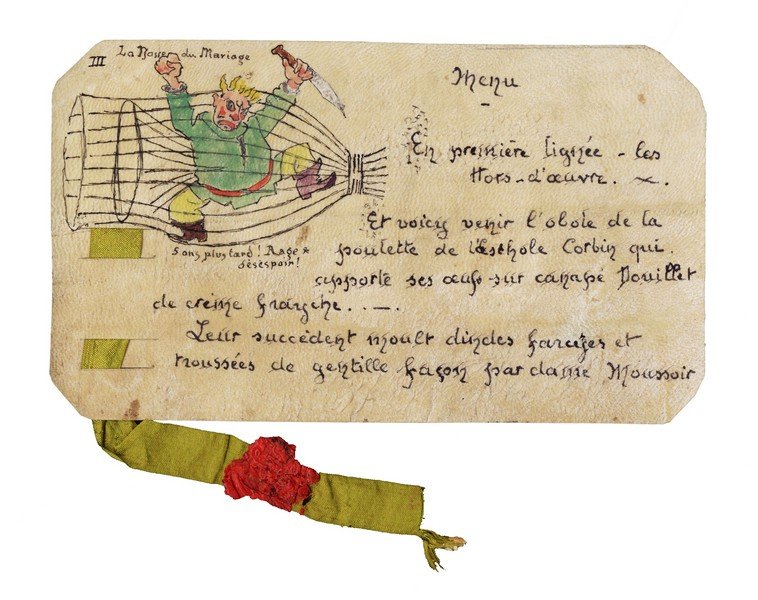 III
La Nasse du Mariage
5 ans plus tard! Rage &
désespoir!
Menu
En première lignée - les
Hors-d'œuvre.
Et voicy venir l'obole de la
poulette de l'Eschole Corbin qui
apporte ses œufs sur canapé Douillet
de crème franche...
Leur succèdent moult dindes farcyes et
troussées de gentille façon par dame Moussoir